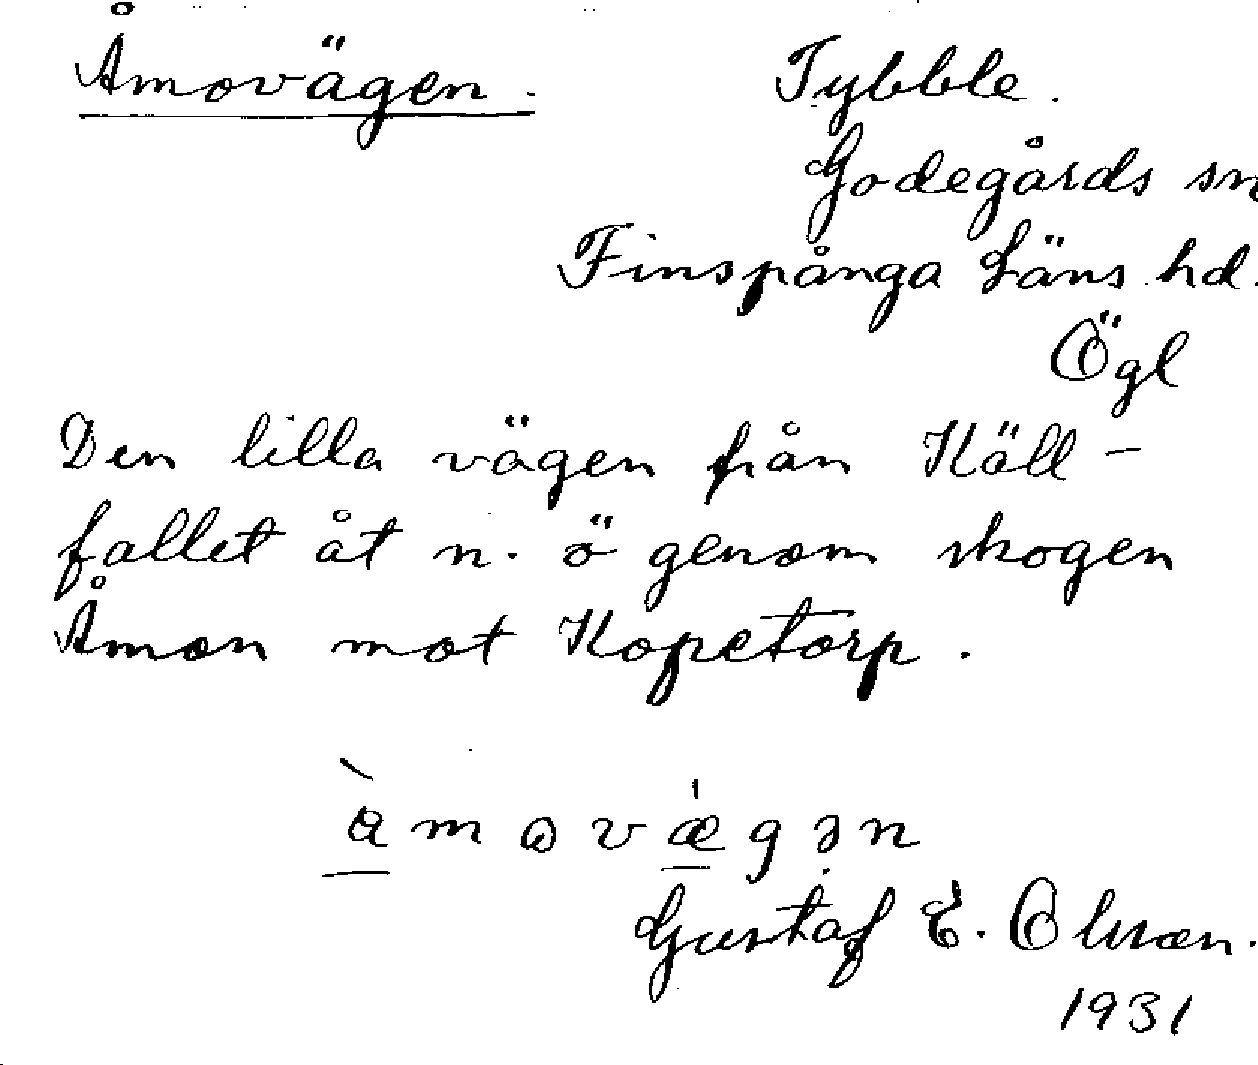 Åmovägen. Tybble.
Godegårds sn
Finspånga Läns hd.
Ögl
Den lilla vägen från Käll-
fallet åt n. ö genom skogen
Åmon mot Kopetorp.
Gustaf E. Olsson.
1931